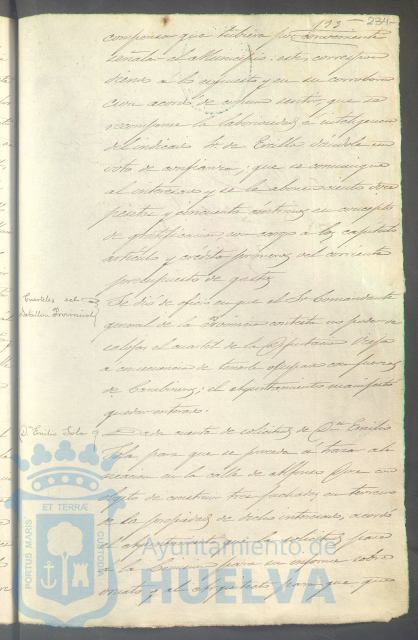 193 234
compensa que tubiera por conveniente
señalar el Municipio: este, correspon
diendo á lo espuesto y en su corrobora
cion acordó de comun sentir, que se
recompense la laboriosidad é inteligencia
del indicado Sr. de Ercilla dándole un
voto de confianza, que se comunique
al interesado y se le abone ciento doce
pesetas y cincuenta céntimos en concepto
de gratificacion con cargo á los capitulo
artículo y crédito primeros del corriente
presupuesto de gastos.
Cuarteles del
Batallon Provincial
Se dió de oficio en que el Sr. Comandante
general de la Provincia contesta no puede de
salojar el cuartel de la Diputacion Vieja
á consecuencia de tenerle ocupado con fuerzas
de Carabineros; el Ayuntamiento manifestó
quedar enterado.
D. Emilio Sola
Dada cuenta de solicitud de D. Emilio
Sola para que se proceda á trazar ali
neacion en la calle de Alfonso Doce con
objeto de construir tres fachadas en terreno
de la propiedad de dicho interesado, acordó
el Ayuntamiento que la solicitud pase
á la Comision para su informe sobre
ornato y al arquitecto para que
PORTUS MARIS
ET TERRÆ
CUSTODIA
Ayuntamiento de
HUELVA